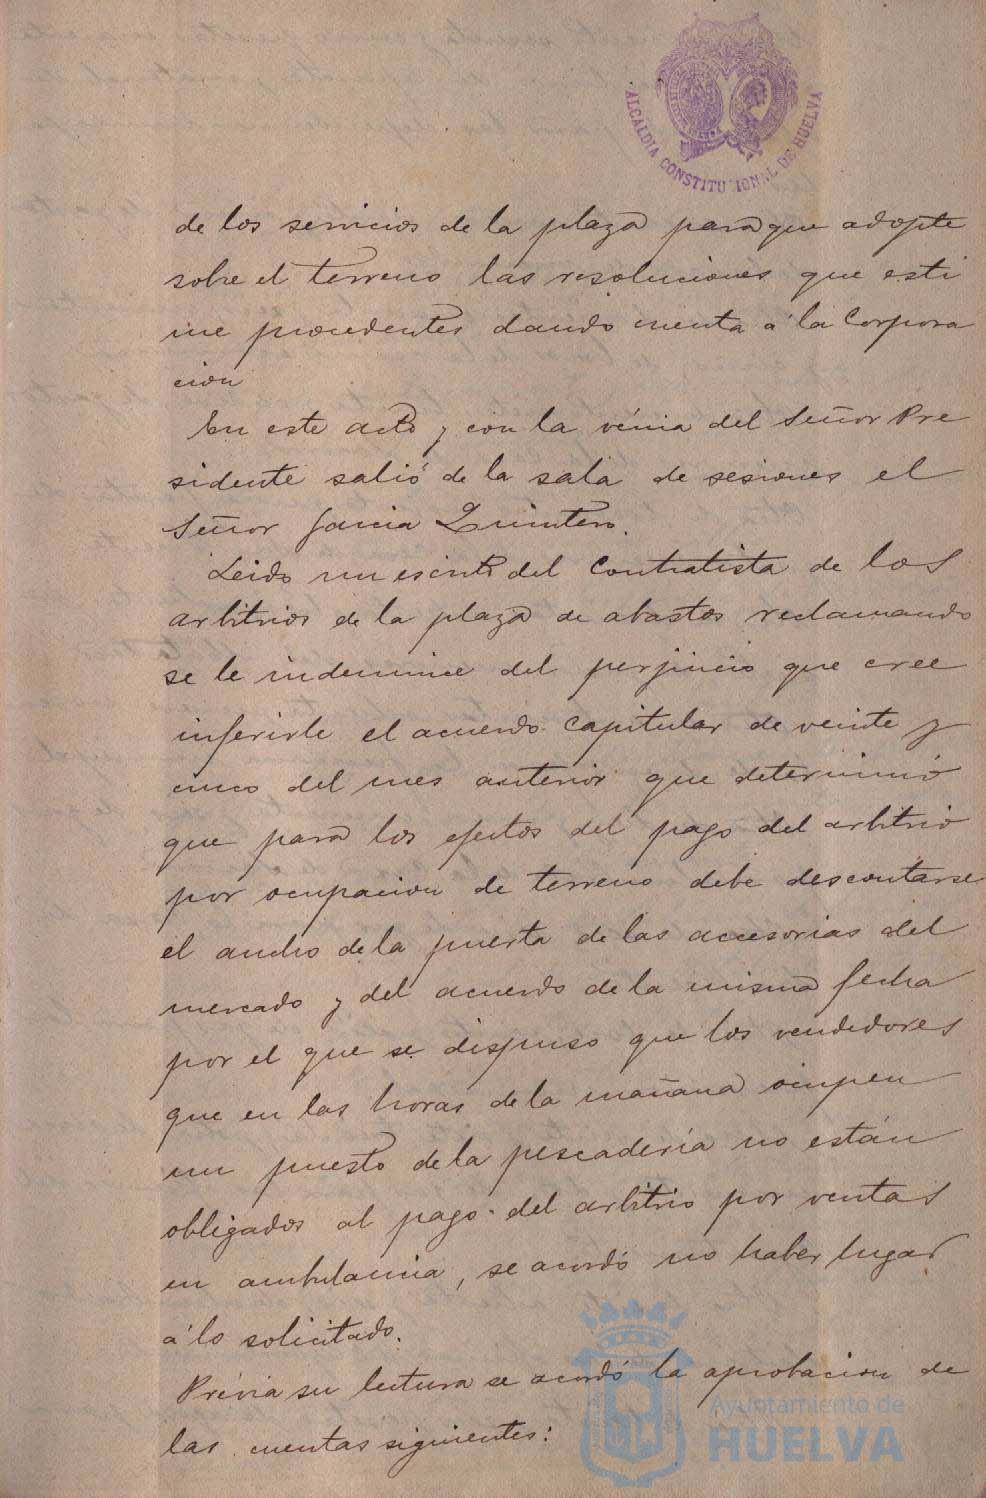 ALCALDIA CONSTITUCIONAL DE HUELVA
de los servicios de la plaza para que adopte
sobre el terreno las resoluciones que esti
me procedentes dando cuenta á la Corpora
cion
En este acto y con la vénia del Señor Pre
sidente salió de la sala de sesiones el
Señor Garcia Quintero.
Leido un escrito del Contratista de los
arbitrios de la plaza de abastos reclamando
se le indemnice del perjuicio que cree
inferirle el acuerdo capitular de veinte y
cinco del mes anterior que determinó
que para los efectos del pago del arbitrio
por ocupacion de terreno debe descontarse
el ancho de la puerta de las accesorias del
mercado y del acuerdo de la misma fecha
por el que se dispuso que los vendedores
que en las horas de la mañana ocupen
un puesto de la pescadería no están
obligados al pago del arbitrio por ventas
en ambulancia, se acordó no haber lugar
á lo solicitado.
Prévia su lectura se acordó la aprobacion de
las cuentas siguientes:
Ayuntamiento de
HUELVA